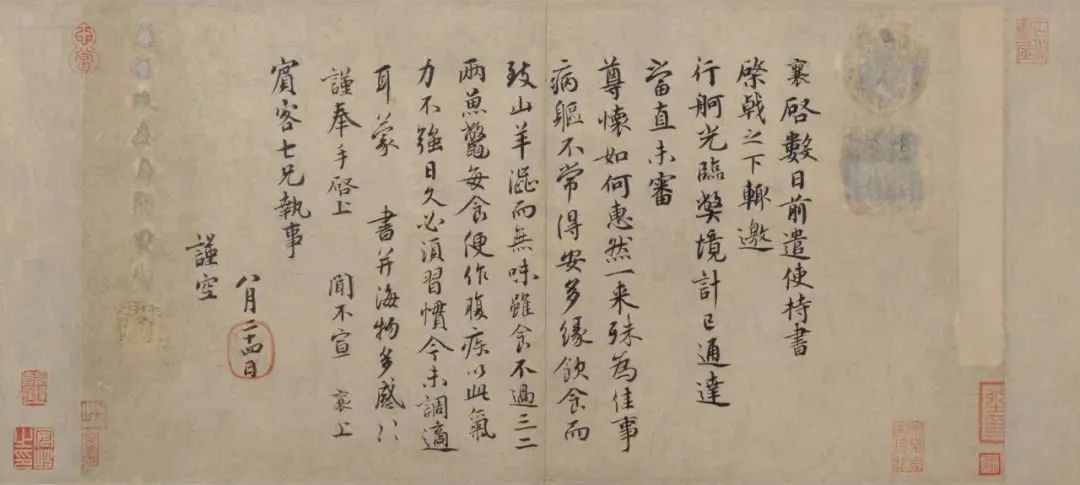 襄啓數日前遣使持書
棨戟之下輙邀
行舸光臨獘境計已通達
當直未審
尊懷如何惠然一来殊為佳事
病軀不常得安多緣飲食而
致山羊澁而無味雖食不過三二
兩魚鼈每食便作腹疾以此氣
力不強日久必須習慣今未調適
耳蒙 書并海物多感〻
謹奉手啓上 聞不宣 襄上
賓客七兄執事
八月二十四日
謹空